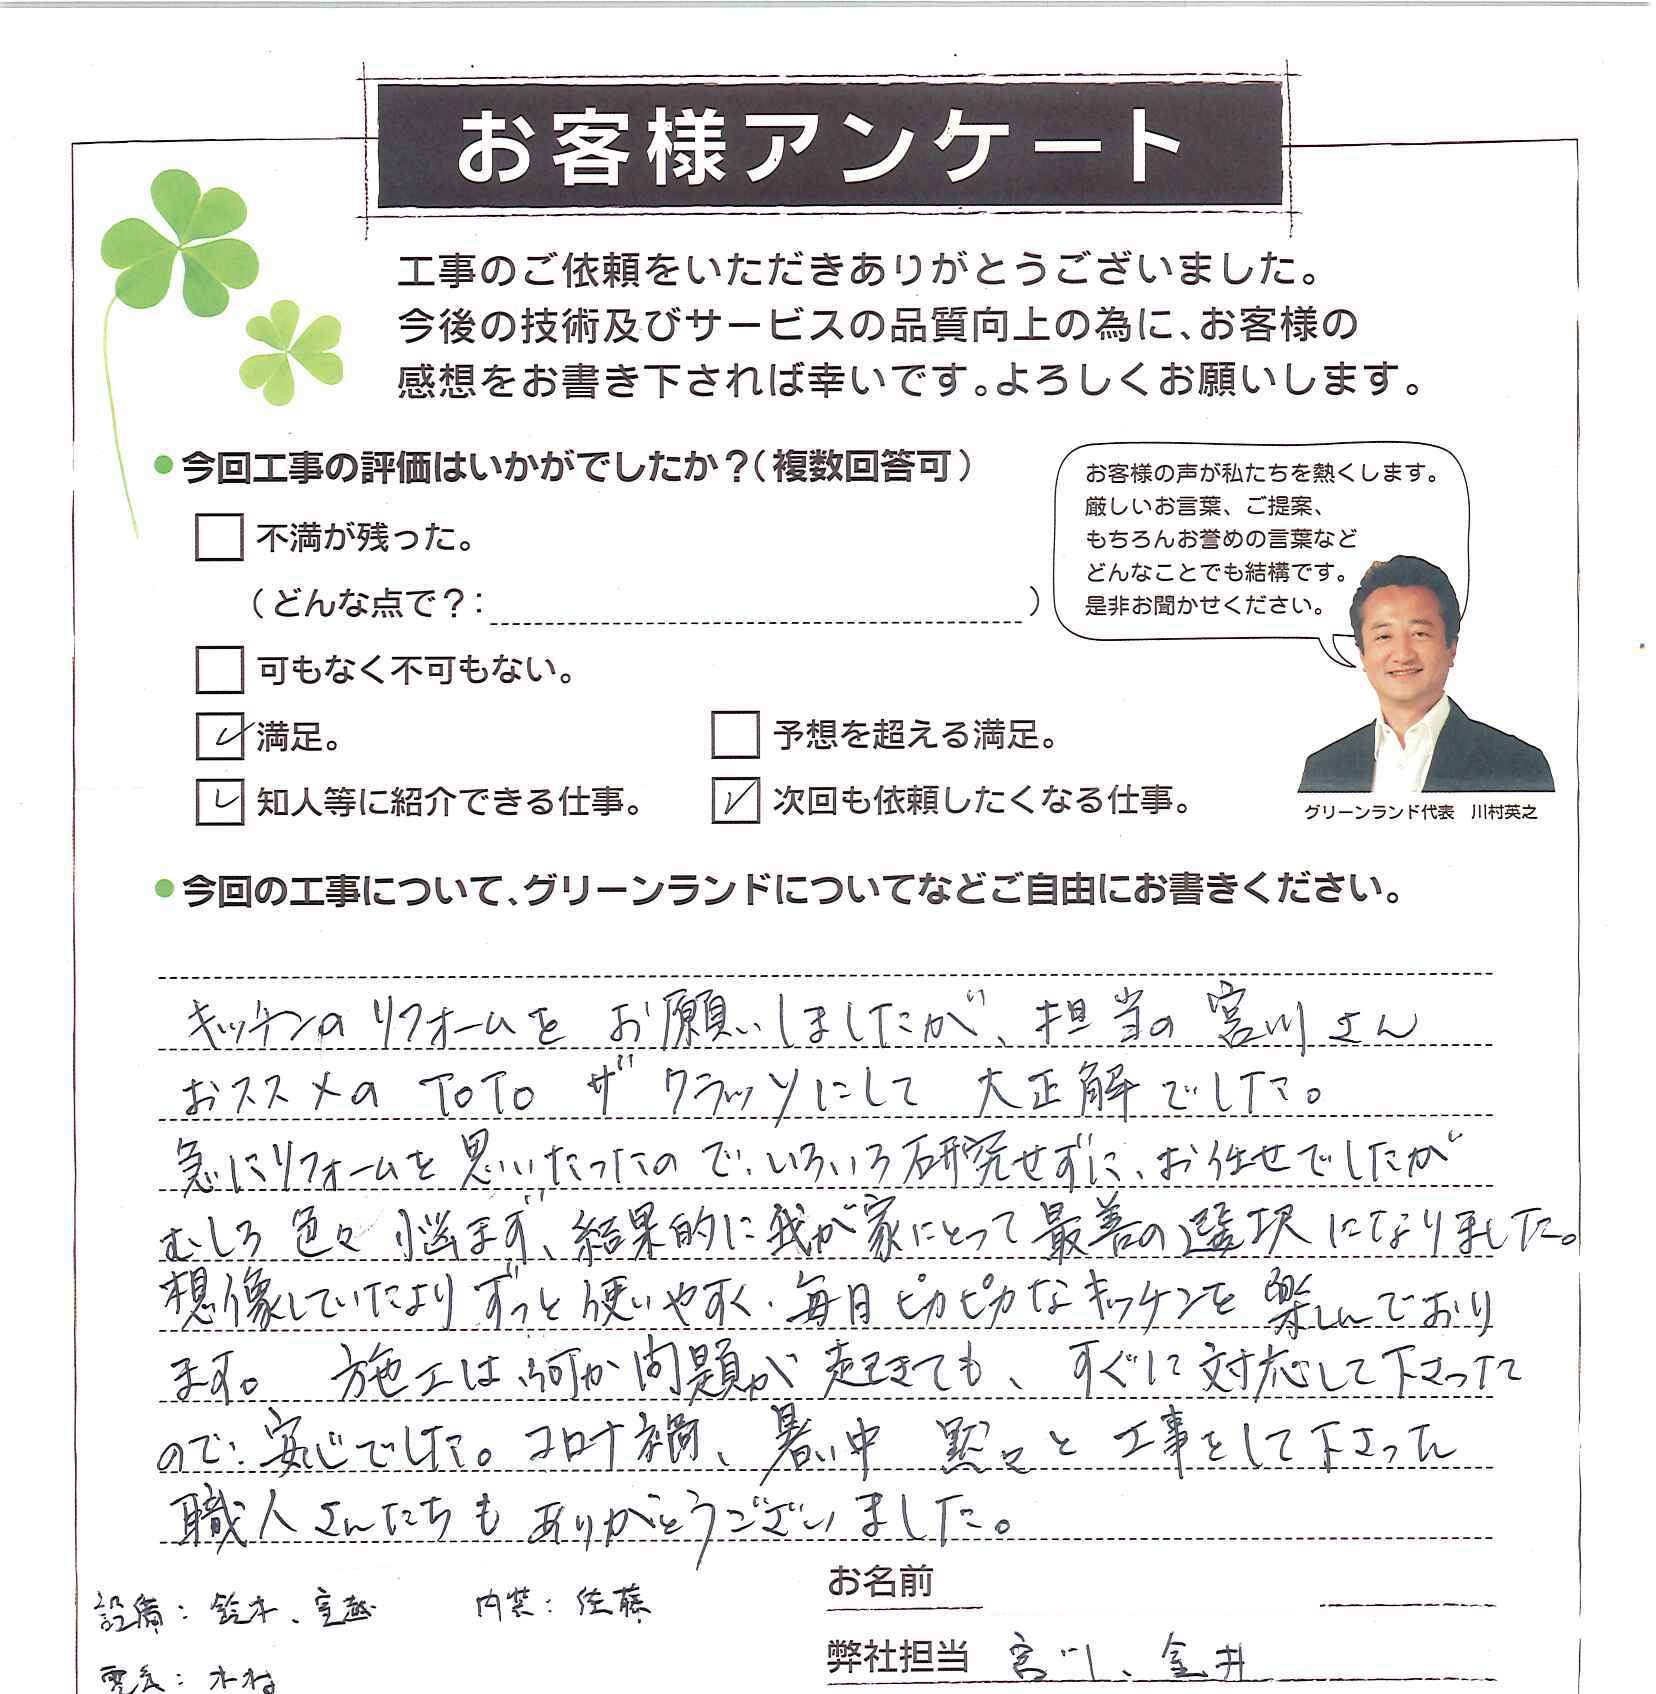 お客様アンケート
工事のご依頼をいただきありがとうございました。
今後の技術及びサービスの品質向上の為に、お客様の
感想をお書き下されば幸いです。よろしくお願いします。
●今回工事の評価はいかがでしたか？（複数回答可）
不満が残った。
（どんな点で？：　）
可もなく不可もない。
満足。
予想を超える満足。
知人等に紹介できる仕事。
次回も依頼したくなる仕事。
お客様の声が私たちを熱くします。
厳しいお言葉、ご提案、
もちろんお誉めの言葉など
どんなことでも結構です。
是非お聞かせください。
グリーンランド代表　川村英之
●今回の工事について、グリーンランドについてなどご自由にお書きください。
キッチンのリフォームを お願いしましたが、担当の宮川さん
おススメの TOTO ザ クラッソにして 大正解でした。
急にリフォームを思いたったので、いろいろ研究せずに、お任せでしたが
むしろ 色々 悩まず、結果的に我が家にとって最善の選択になりました。
想像していたよりずっと使いやすく、毎日ピカピカなキッチンを楽しんでおり
ます。 施工は、何か問題が起きても、すぐに対応して下さった
ので、安心でした。コロナ禍、暑い中 黙々と工事をして下さった
職人さんたちもありがとうございました。
設備：鈴木、宮越　内装：佐藤
電気：木村
お名前
弊社担当 宮川、金井